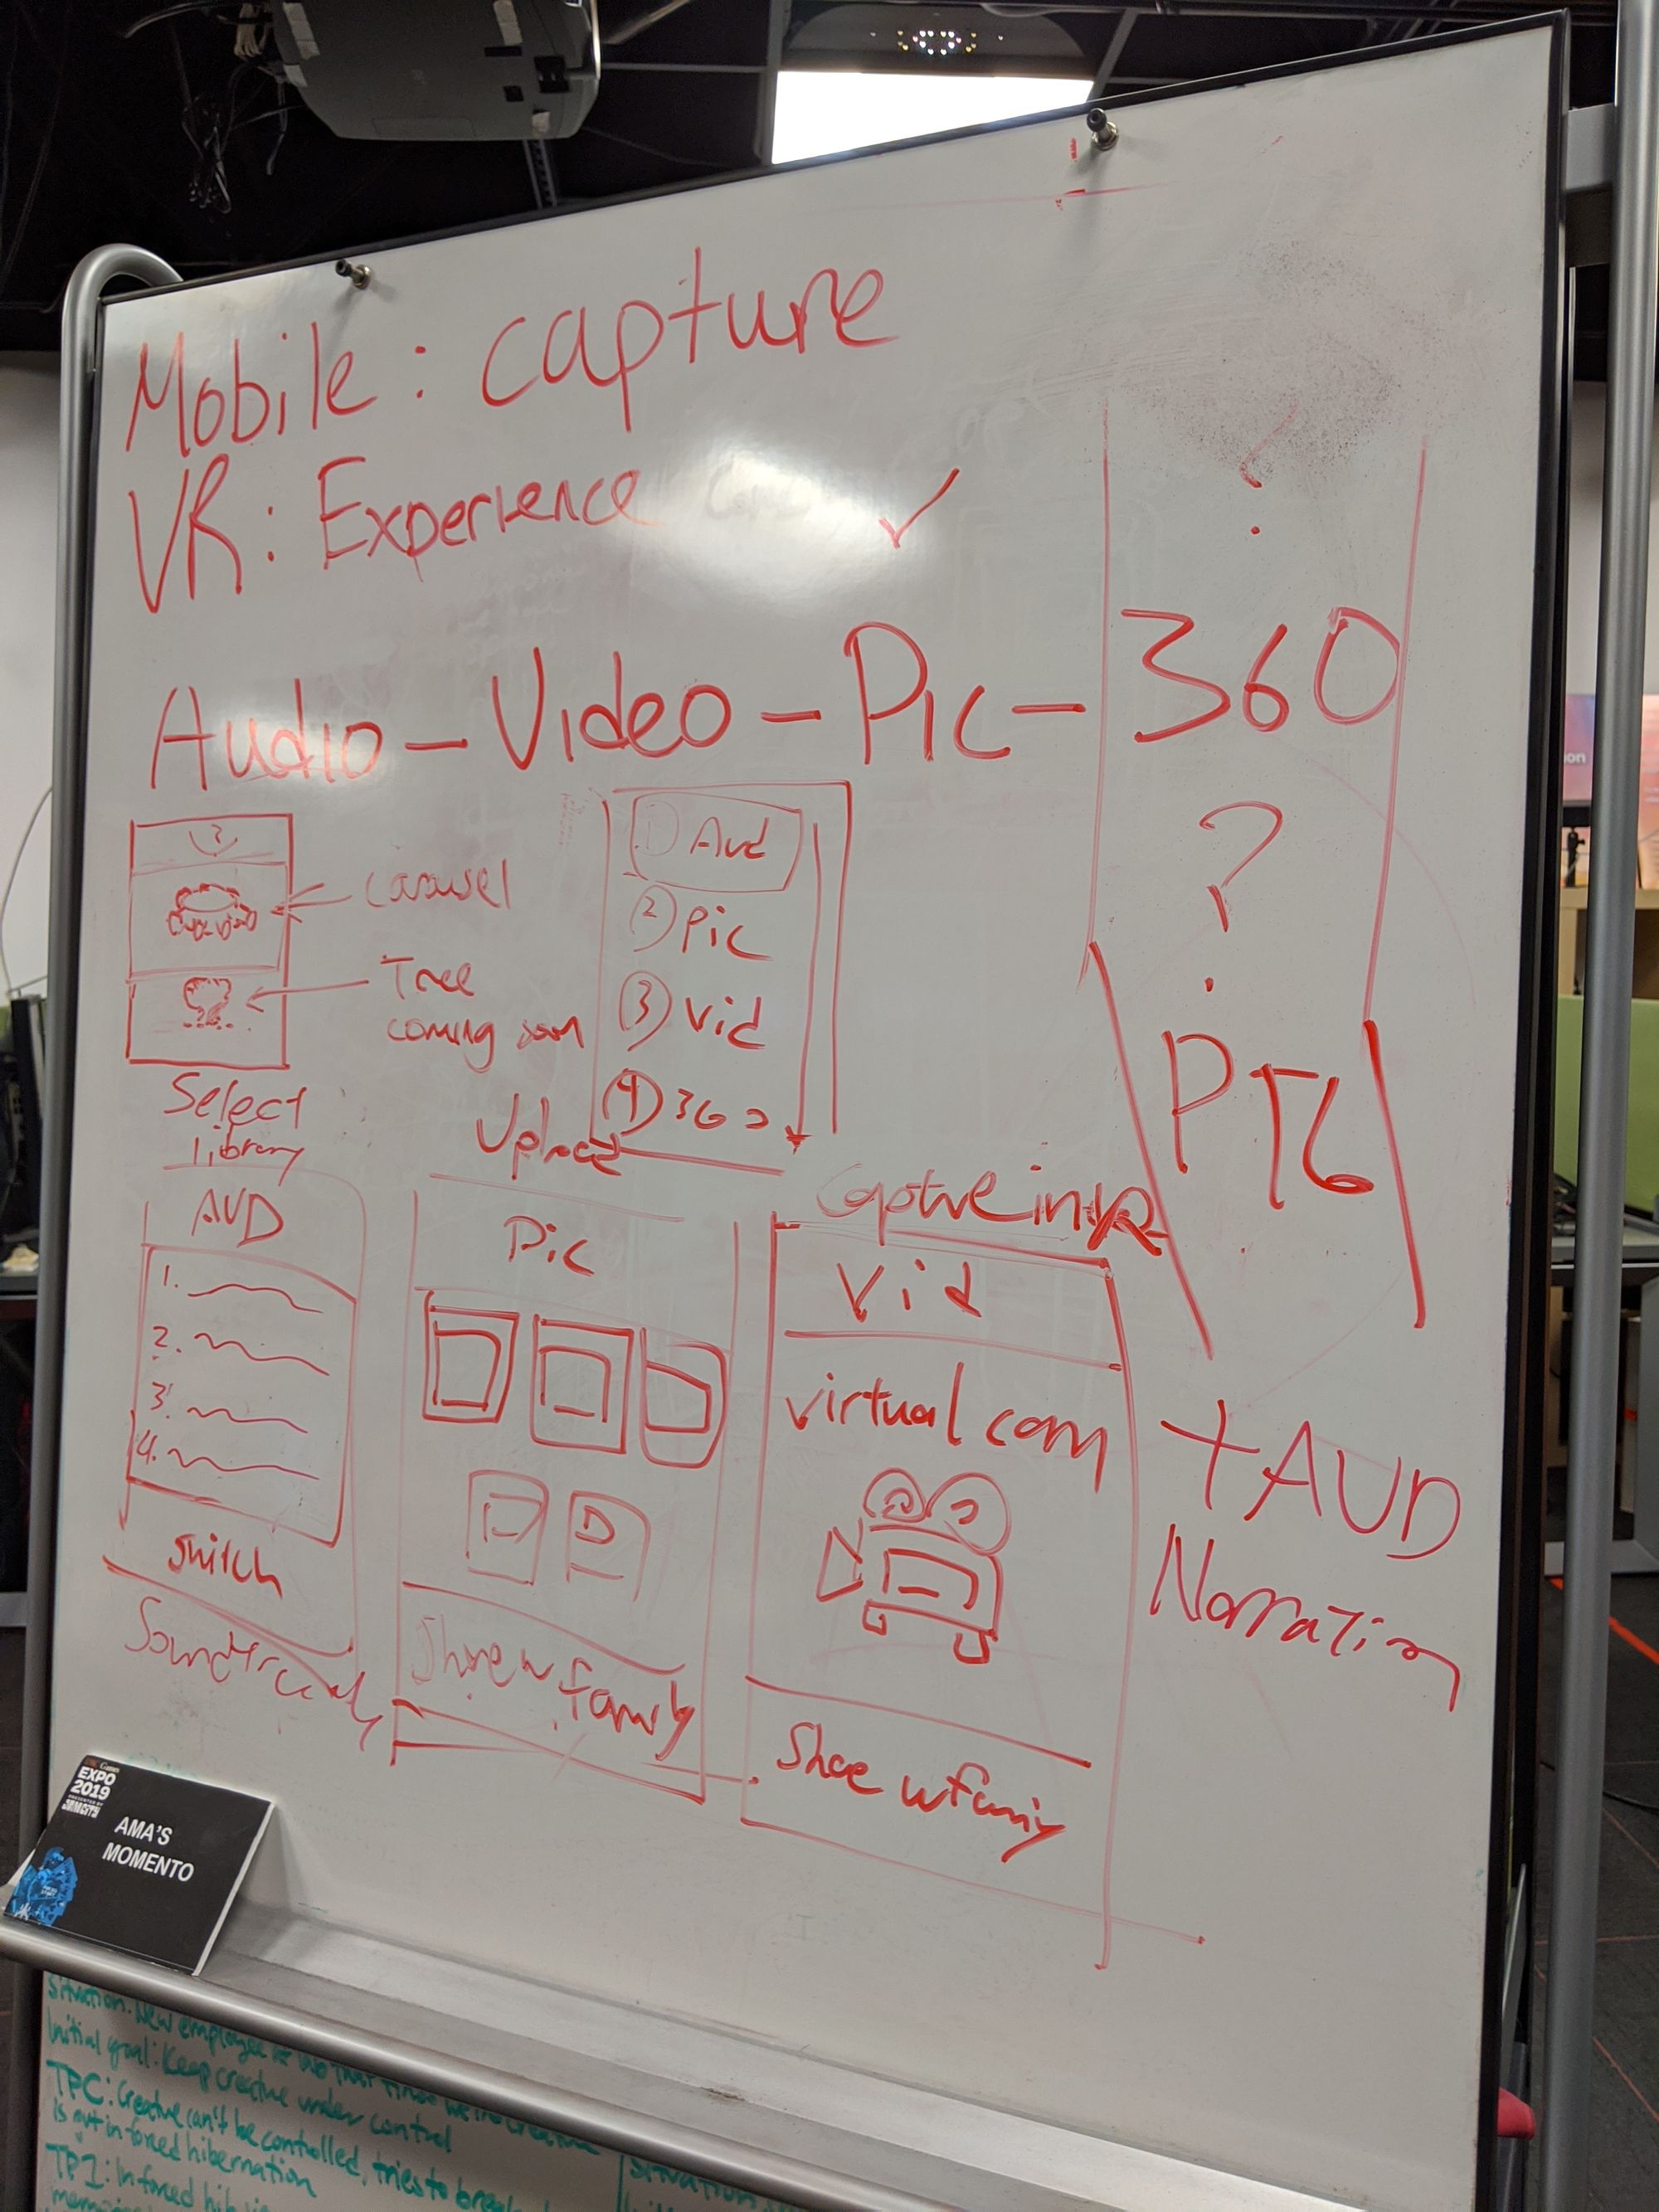 Mobile: capture
VR: Experience
?
Audio - Video - Pic - 360
?
PIC
carousel
Tree
coming soon
Select
Library
① Aud
② Pic
③ Vid
④ 360
Upload
AUD
1.
2.
3.
4.
Switch
Soundtrack
Pic
Share w family
Capture in VR
Vid
virtual cam
Share w Family
+ AUD
Narration
Games
EXPO
2019
PRESENTED BY
JAMCITY
AMA'S
MOMENTO
Situation: New employee
Initial goal: Keep creative under control
TPC: Creative can't be controlled, tries to break
is put in forced hibernation
TP1: In forced
Situation